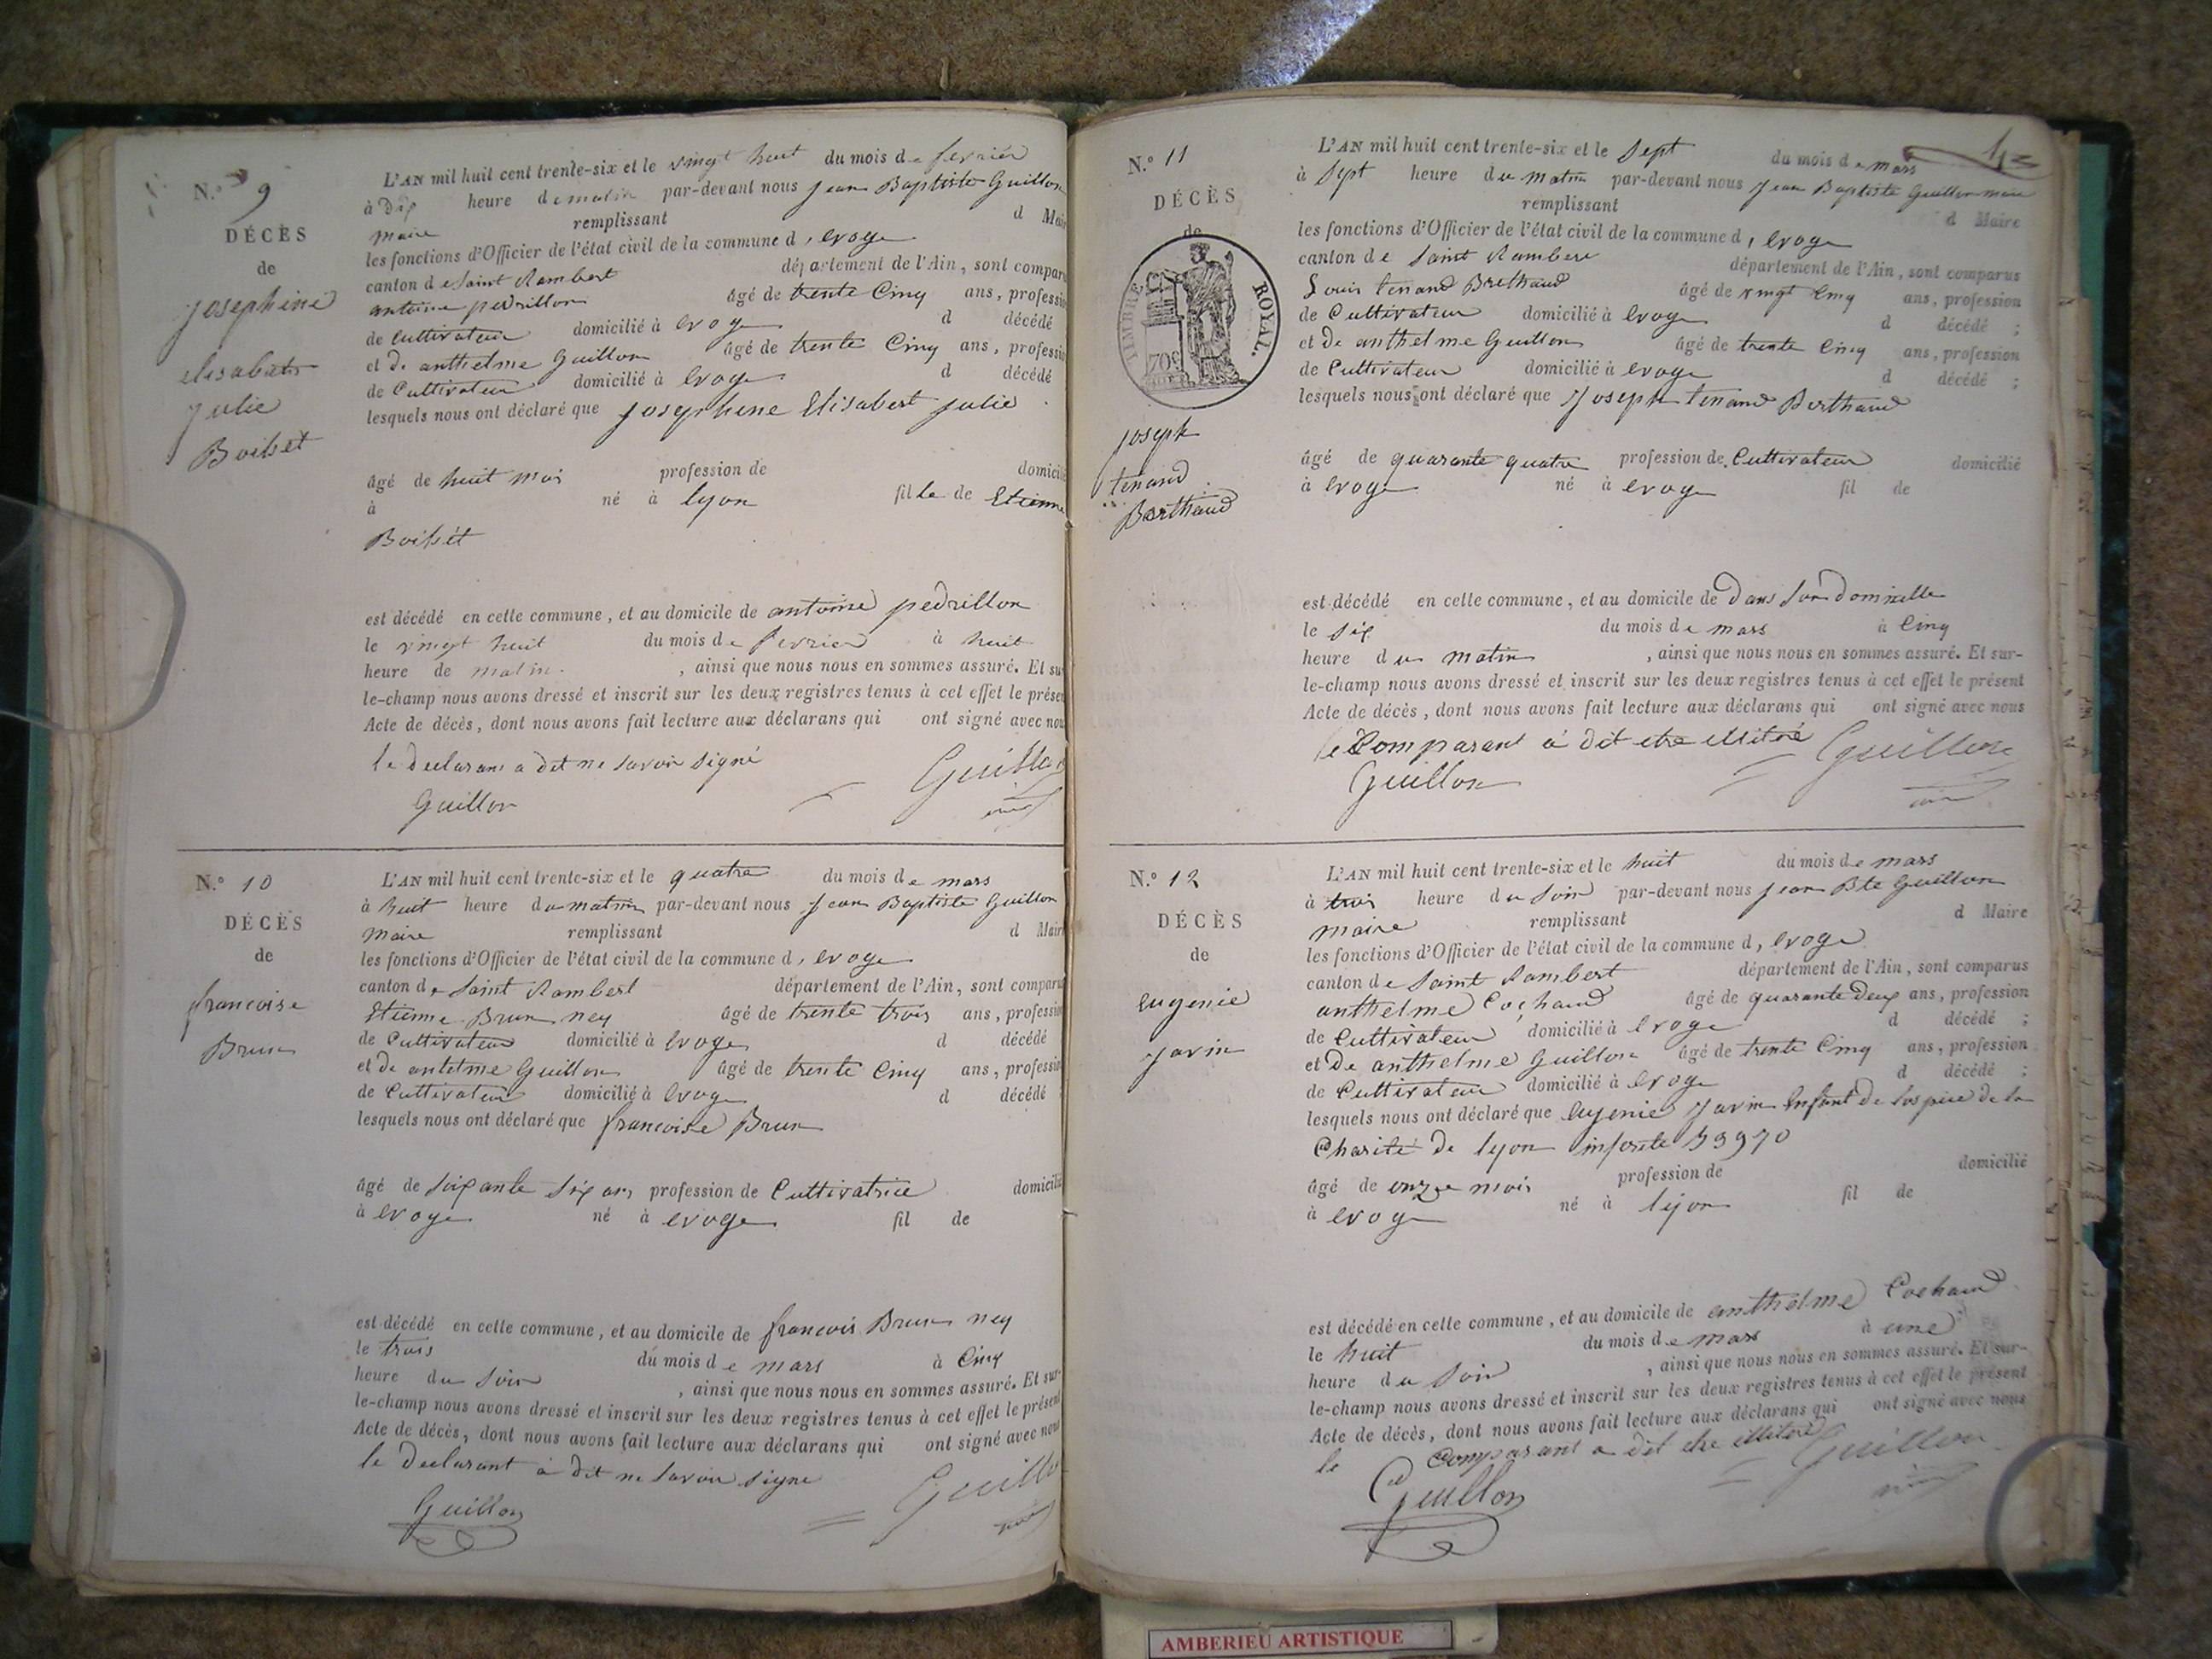 N.° 9
DÉCÈS
de
josephine
elisabets
julie
Boibet
L'AN mil huit cent trente-six et le vingt huit du mois de fevrier
à Dix heure de matin par-devant nous jean Baptiste Guillon
maire remplissant d Mai
les fonctions d'Officier de l'état civil de la commune d, evoge
canton de Saint Rambert département de l'Ain, sont compar
antoine pedrillon âgé de trente Cinq ans, professi
de Cultivateur domicilié à evoge d décédé
et de anthelme Guillon âgé de trente Cinq ans, professi
de Cultivateur domicilié à evoge d décédé
lesquels nous ont déclaré que josephine Elisabert julie
âgé de huit moi profession de domicili
à né à lyon fille de Etienne
Boibet
est décédé en cette commune, et au domicile de antoine pedrillon
le vingt huit du mois de fevrier à huit
heure de matin. , ainsi que nous nous en sommes assuré. Et su
le-champ nous avons dressé et inscrit sur les deux registres tenus à cet effet le présen
Acte de décès, dont nous avons fait lecture aux déclarans qui ont signé avec nou
le declarans a dit ne savoir signé
Guillon
Guillo
N.° 10
DÉCÈS
de
francoise
Brun
L'AN mil huit cent trente-six et le quatre du mois de mars
à huit heure du matin par-devant nous jean Baptiste Guillon
maire remplissant d Mair
les fonctions d'Officier de l'état civil de la commune d, evoge
canton de Saint Rambert département de l'Ain, sont compar
Etienne Brun ney âgé de trente trois ans, professi
de Cultivateur domicilié à evoge d décédé
et de antelme Guillon âgé de trente Cinq ans, professi
de Cultivateur domicilié à evoge d décédé
lesquels nous ont déclaré que francoise Brun
âgé de soixante six ans profession de Cultivatrice domicili
à evoge né à evoge fil de
est décédé en cette commune, et au domicile de francois Brun ney
le trois du mois de mars à Cinq
heure du soir , ainsi que nous nous en sommes assuré. Et sur-
le-champ nous avons dressé et inscrit sur les deux registres tenus à cet effet le présen
Acte de décès, dont nous avons fait lecture aux déclarans qui ont signé avec nou
le Declarant a dit ne savoir signe
Guillon
Guillo
N.° 11
DÉCÈS
de
TIMBRE ROYAL.
70c
joseph
tenand
Berthaud
L'AN mil huit cent trente-six et le Sept du mois de mars
à Sept heure du matin par-devant nous jean Baptiste Guillon maire
remplissant d Maire
les fonctions d'Officier de l'état civil de la commune d, evoge
canton de Saint Rambert département de l'Ain, sont comparus
Louis tenand Brethaud âgé de vingt Cinq ans, profession
de Cultivateur domicilié à evoge d décédé ;
et de anthelme Guillon âgé de trente Cinq ans, profession
de Cultivateur domicilié à evoge d décédé ;
lesquels nous ont déclaré que Joseph tenand Berthaud
âgé de quarante quatre profession de Cultivateur domicilié
à evoge né à evoge fil de
est décédé en cette commune, et au domicile de dans son domicille
le six du mois de mars à Cinq
heure du matin , ainsi que nous nous en sommes assuré. Et sur-
le-champ nous avons dressé et inscrit sur les deux registres tenus à cet effet le présent
Acte de décès, dont nous avons fait lecture aux déclarans qui ont signé avec nous
le Comparant a dit etre ilitéré Guillon
Guillon
N.° 12
DÉCÈS
de
Eugenie
javin
L'AN mil huit cent trente-six et le huit du mois de mars
à trois heure du soir par-devant nous jean Bte Guillon
maire remplissant d Maire
les fonctions d'Officier de l'état civil de la commune d, evoge
canton de Saint Rambert département de l'Ain, sont comparus
anthelme Cochaud âgé de quarante deux ans, profession
de Cultivateur domicilié à evoge d décédé ;
et De anthelme Guillon âgé de trente Cinq ans, profession
de Cultivateur domicilié à evoge d décédé ;
lesquels nous ont déclaré que Eugenie javin Enfant de lospice de la
Charité de lyon
âgé de onze mois profession de domicilié
à evoge né à lyon fil de
est décédé en cette commune, et au domicile de anthelme Cochaud
le huit du mois de mars à une
heure du soir , ainsi que nous nous en sommes assuré. Et sur-
le-champ nous avons dressé et inscrit sur les deux registres tenus à cet effet le présent
Acte de décès, dont nous avons fait lecture aux déclarans qui ont signé avec nous
le Comparant a dit etre ilitéré Guillon
Guillon
AMBERIEU ARTISTIQUE